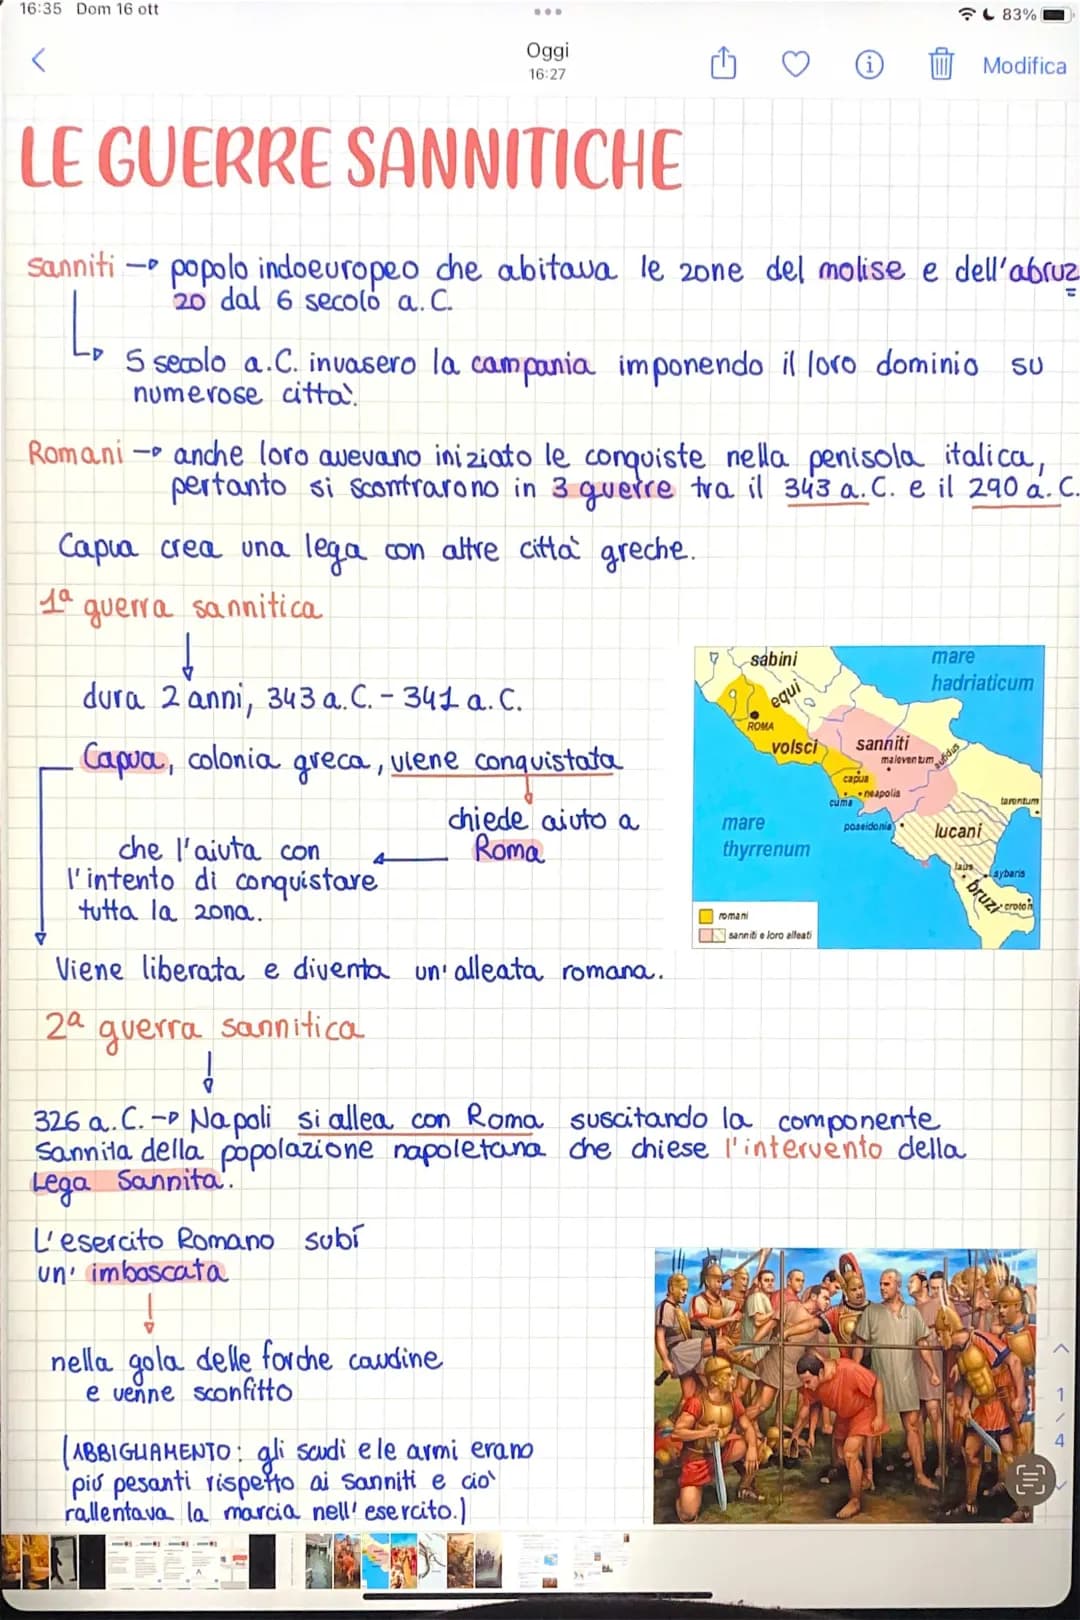 16:35 Dom 16 ott
83%
Oggi
16:27
Modifica
LE GUERRE SANNITICHE
sanniti → popolo indoeuropeo che abitava le zone del molise e dell'abruz
zo dal 6 secolo a.C.
5 secolo a.C. invasero la campania imponendo il loro dominio su
numerose città.
Romani → anche loro avevano iniziato le conquiste nella penisola italica,
pertanto si scontrarono in 3 guerre tra il 343 a.C. e il 290 a.C.
Capua crea una lega con altre città greche.
1ª guerra sannitica
dura 2 anni, 343 a.C. - 341 a.C.
Capua, colonia greca, viene conquistata
chiede aiuto a
Roma
che l'aiuta con
l'intento di conquistare
tutta la zona.
Viene liberata e diventa un'alleata romana.
sabini
equi
ROMA
volsci
mare
hadriaticum
sanniti
maleventum
aufidus
capua
neapolis
cuma
tarentum
poseidonia
lucani
mare
thyrrenum
laus
sybaris
bruzi
croton
romani
sanniti e loro alleati
2ª guerra sannitica
326 a.C. → Napoli si allea con Roma suscitando la componente
Sannita della popolazione napoletana che chiese l'intervento della
Lega Sannita.
L'esercito Romano subì
un' imboscata
nella gola delle forche caudine
e venne sconfitto
(ABBIGLIAMENTO: gli scudi e le armi erano
più pesanti rispetto ai Sanniti e ciò
rallentava la marcia nell'esercito.)
1
/
4